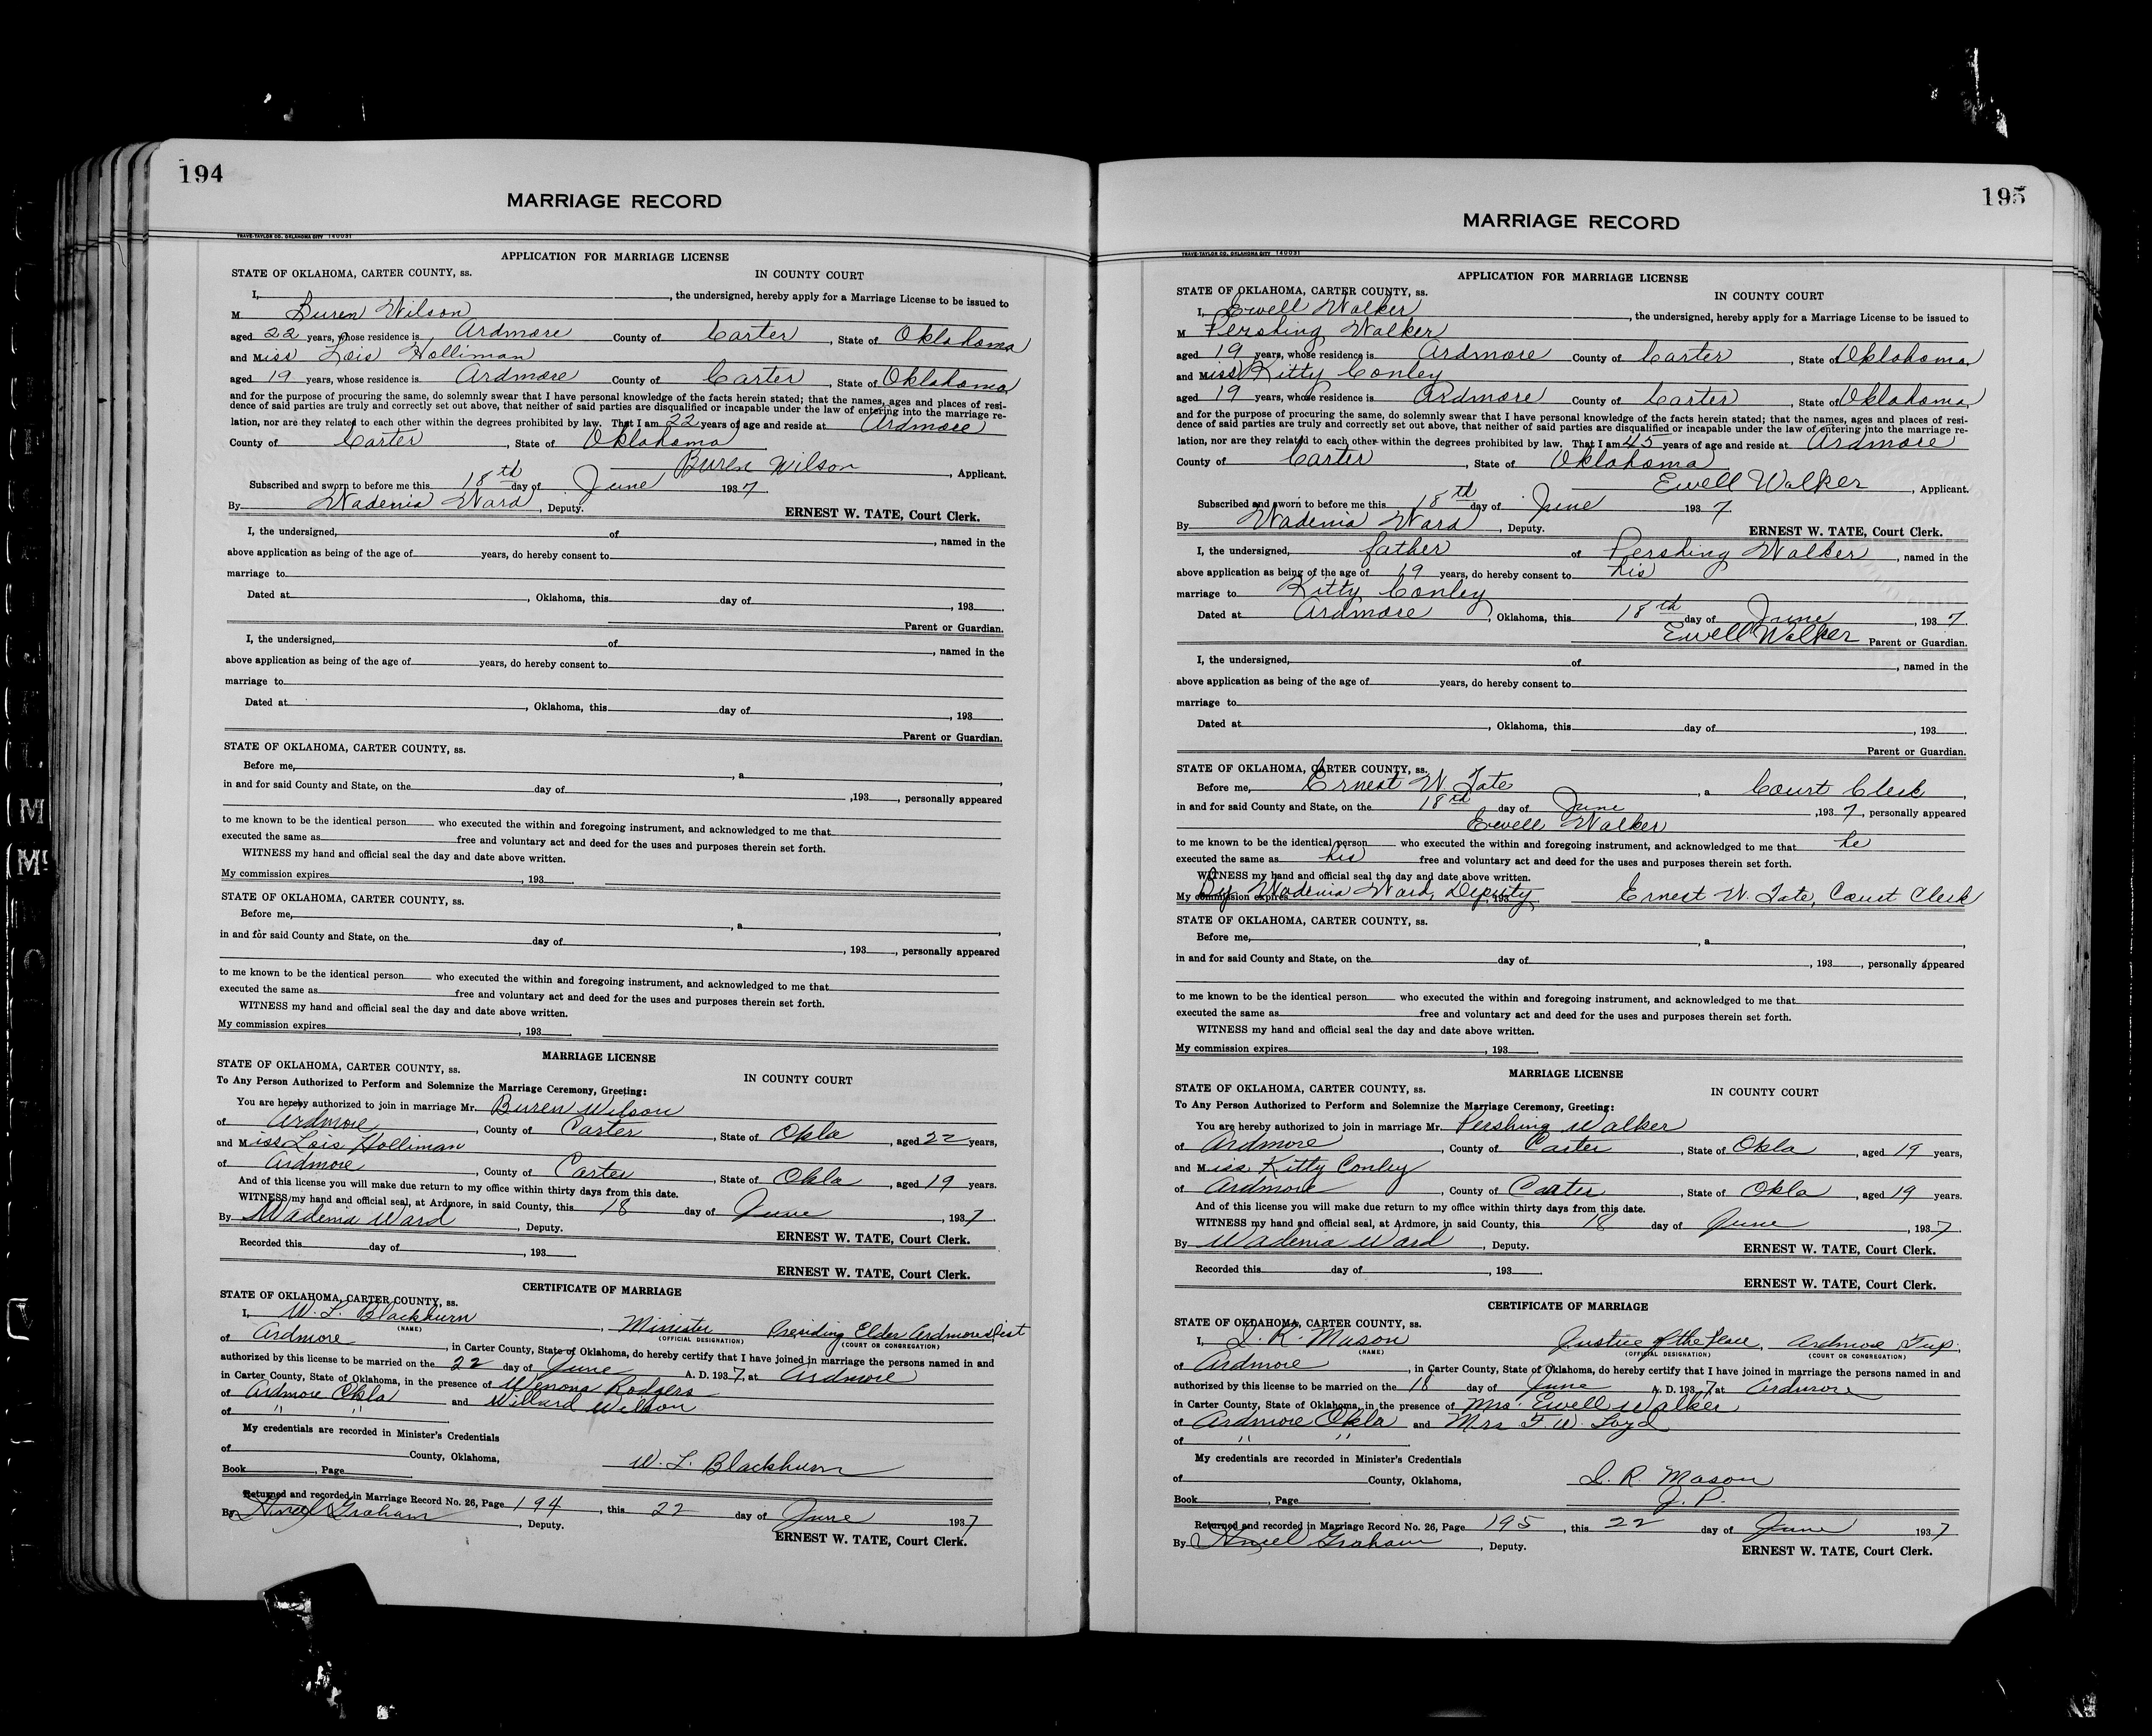 194
MARRIAGE RECORD
TRAVE-TAYLOR CO. OKLAHOMA CITY 140031
APPLICATION FOR MARRIAGE LICENSE
STATE OF OKLAHOMA, CARTER COUNTY, ss. IN COUNTY COURT
I, , the undersigned, hereby apply for a Marriage License to be issued to
M Buren Wilson
aged 22 years, whose residence is Ardmore County of Carter , State of Oklahoma
and Miss Lois Holliman
aged 19 years, whose residence is Ardmore County of Carter , State of Oklahoma,
and for the purpose of procuring the same, do solemnly swear that I have personal knowledge of the facts herein stated; that the names, ages and places of resi-
dence of said parties are truly and correctly set out above, that neither of said parties are disqualified or incapable under the law of entering into the marriage re-
lation, nor are they related to each other within the degrees prohibited by law. That I am 22 years of age and reside at Ardmore
County of Carter , State of Oklahoma
Buren Wilson , Applicant.
Subscribed and sworn to before me this 18th day of June 1937.
By Wadenia Ward , Deputy. ERNEST W. TATE, Court Clerk.
I, the undersigned, of , named in the
above application as being of the age of years, do hereby consent to
marriage to
Dated at , Oklahoma, this day of , 193 .
Parent or Guardian.
I, the undersigned, of , named in the
above application as being of the age of years, do hereby consent to
marriage to
Dated at , Oklahoma, this day of , 193 .
Parent or Guardian.
STATE OF OKLAHOMA, CARTER COUNTY, ss.
Before me, , a ,
in and for said County and State, on the day of ,193 , personally appeared
to me known to be the identical person who executed the within and foregoing instrument, and acknowledged to me that
executed the same as free and voluntary act and deed for the uses and purposes therein set forth.
WITNESS my hand and official seal the day and date above written.
My commission expires , 193
STATE OF OKLAHOMA, CARTER COUNTY, ss.
Before me, , a ,
in and for said County and State, on the day of , 193 , personally appeared
to me known to be the identical person who executed the within and foregoing instrument, and acknowledged to me that
executed the same as free and voluntary act and deed for the uses and purposes therein set forth.
WITNESS my hand and official seal the day and date above written.
My commission expires , 193 .
MARRIAGE LICENSE
STATE OF OKLAHOMA, CARTER COUNTY, ss. IN COUNTY COURT
To Any Person Authorized to Perform and Solemnize the Marriage Ceremony, Greeting:
You are hereby authorized to join in marriage Mr. Buren Wilson
of Ardmore , County of Carter , State of Okla , aged 22 years,
and Miss Lois Holliman
of Ardmore , County of Carter , State of Okla , aged 19 years.
And of this license you will make due return to my office within thirty days from this date.
WITNESS my hand and official seal, at Ardmore, in said County, this 18 day of June , 1937.
By Wadenia Ward , Deputy. ERNEST W. TATE, Court Clerk.
Recorded this day of , 193
ERNEST W. TATE, Court Clerk.
CERTIFICATE OF MARRIAGE
STATE OF OKLAHOMA, CARTER COUNTY, ss.
I, W. L. Blackburn , Minister Presiding Elder Ardmore Dist
(NAME) (OFFICIAL DESIGNATION) (COURT OR CONGREGATION)
of Ardmore , in Carter County, State of Oklahoma, do hereby certify that I have joined in marriage the persons named in and
authorized by this license to be married on the 22 day of June A. D. 1937, at Ardmore
in Carter County, State of Oklahoma, in the presence of Wenona Rodgers
of Ardmore Okla and Willard Wilson
of " "
My credentials are recorded in Minister's Credentials
of County, Oklahoma,
W. L. Blackburn
Book , Page
Returned and recorded in Marriage Record No. 26, Page 194 , this 22 day of June 1937
By Graham , Deputy. ERNEST W. TATE, Court Clerk.
195
MARRIAGE RECORD
TRAVE-TAYLOR CO. OKLAHOMA CITY 140031
APPLICATION FOR MARRIAGE LICENSE
STATE OF OKLAHOMA, CARTER COUNTY, ss. IN COUNTY COURT
I, Ewell Walker , the undersigned, hereby apply for a Marriage License to be issued to
M Pershing Walker
aged 19 years, whose residence is Ardmore County of Carter , State of Oklahoma,
and Miss Kitty Conley
aged 19 years, whose residence is Ardmore County of Carter , State of Oklahoma,
and for the purpose of procuring the same, do solemnly swear that I have personal knowledge of the facts herein stated; that the names, ages and places of resi-
dence of said parties are truly and correctly set out above, that neither of said parties are disqualified or incapable under the law of entering into the marriage re-
lation, nor are they related to each other within the degrees prohibited by law. That I am 45 years of age and reside at Ardmore
County of Carter , State of Oklahoma
Ewell Walker , Applicant.
Subscribed and sworn to before me this 18th day of June 1937
By Wadenia Ward , Deputy. ERNEST W. TATE, Court Clerk.
I, the undersigned, father of Pershing Walker , named in the
above application as being of the age of 19 years, do hereby consent to his
marriage to Kitty Conley
Dated at Ardmore , Oklahoma, this 18th day of June , 1937.
Ewell Walker Parent or Guardian.
I, the undersigned, of , named in the
above application as being of the age of years, do hereby consent to
marriage to
Dated at , Oklahoma, this day of , 193 .
Parent or Guardian.
STATE OF OKLAHOMA, CARTER COUNTY, ss.
Before me, Ernest W. Tate , a Court Clerk ,
in and for said County and State, on the 18th day of June ,1937, personally appeared
Ewell Walker
to me known to be the identical person who executed the within and foregoing instrument, and acknowledged to me that he
executed the same as his free and voluntary act and deed for the uses and purposes therein set forth.
WITNESS my hand and official seal the day and date above written.
My commission expires By Wadenia Ward, Deputy , 193 Ernest W. Tate, Court Clerk
STATE OF OKLAHOMA, CARTER COUNTY, ss.
Before me, , a ,
in and for said County and State, on the day of , 193 , personally appeared
to me known to be the identical person who executed the within and foregoing instrument, and acknowledged to me that
executed the same as free and voluntary act and deed for the uses and purposes therein set forth.
WITNESS my hand and official seal the day and date above written.
My commission expires , 193 .
MARRIAGE LICENSE
STATE OF OKLAHOMA, CARTER COUNTY, ss. IN COUNTY COURT
To Any Person Authorized to Perform and Solemnize the Marriage Ceremony, Greeting:
You are hereby authorized to join in marriage Mr. Pershing Walker
of Ardmore , County of Carter , State of Okla , aged 19 years,
and Miss Kitty Conley
of Ardmore , County of Carter , State of Okla , aged 19 years.
And of this license you will make due return to my office within thirty days from this date.
WITNESS my hand and official seal, at Ardmore, in said County, this 18 day of June , 1937.
By Wadenia Ward , Deputy. ERNEST W. TATE, Court Clerk.
Recorded this day of , 193 .
ERNEST W. TATE, Court Clerk.
CERTIFICATE OF MARRIAGE
STATE OF OKLAHOMA, CARTER COUNTY, ss.
I, I. R. Mason Justice of the Peace, Ardmore Twp.
(NAME) (OFFICIAL DESIGNATION) (COURT OR CONGREGATION)
of Ardmore , in Carter County, State of Oklahoma, do hereby certify that I have joined in marriage the persons named in and
authorized by this license to be married on the 18 day of June A. D. 1937 at Ardmore
in Carter County, State of Oklahoma, in the presence of Mrs. Ewell Walker
of Ardmore Okla and Mrs F. W. Loyd
of " "
My credentials are recorded in Minister's Credentials
of County, Oklahoma, I. R. Mason
Book , Page . J. P.
Returned and recorded in Marriage Record No. 26, Page 195 , this 22 day of June 1937
By Graham , Deputy. ERNEST W. TATE, Court Clerk.